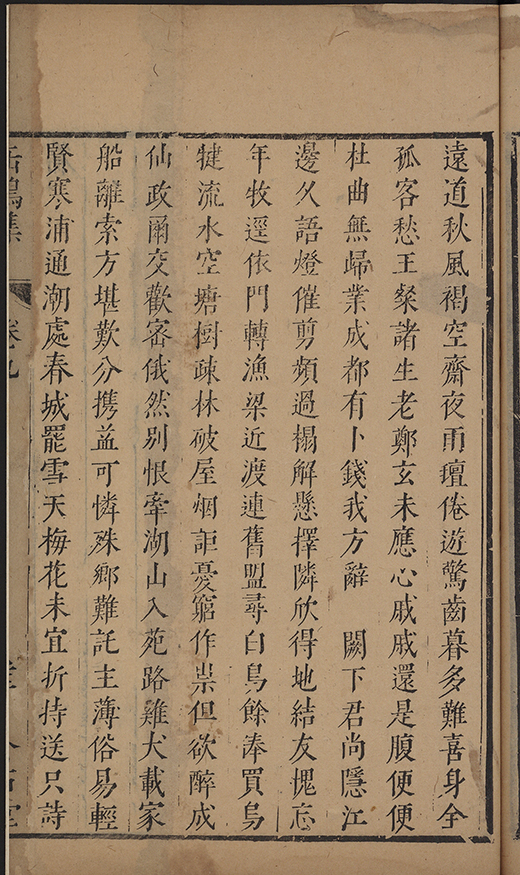 遠道秋風褐空齋夜雨氊倦遊驚齒暮多難喜身全
孤客愁王粲諸生老鄭玄未應心戚戚還是腹便便
杜曲無歸業成都有卜錢我方辭　闕下君尚隱江
邊久語燈催剪頻過榻解懸擇隣欣得地結友愧忘
年牧逕依門轉漁梁近渡連舊盟尋白鳥餘奉買烏
犍流水空塘樹疎林破屋烟詎憂窮作祟但欲醉成
仙政爾交歡密俄然別恨牽湖山入苑路雞犬載家
船離索方堪歎分携益可憐殊鄉難託主薄俗易輕
賢寒浦通潮處春城罷雪天梅花未宜折持送只詩
集
卷九